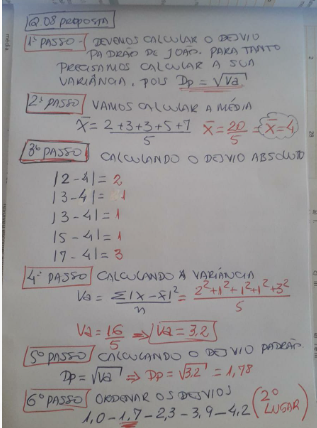 Q 08 PROPOSTA
1º PASSO - DEVEMOS CALCULAR O DESVIO
PADRÃO DE JOÃO. PARA TANTO
PRECISAMOS CALCULAR A SUA
VARIÂNCIA, POIS Dp = √Va
2º PASSO VAMOS CALCULAR A MÉDIA
x̄ = 2+3+3+5+7/5 x̄ = 20/5 = x̄ = 4
3º PASSO CALCULANDO O DESVIO ABSOLUTO
|2-4| = 2
|3-4| = 1
|3-4| = 1
|5-4| = 1
|7-4| = 3
4º PASSO CALCULANDO A VARIÂNCIA
Va = Σ|x-x̄|²/n = 2²+1²+1²+1²+3²/5
Va = 16/5 ⇒ Va = 3.2
5º PASSO CALCULANDO O DESVIO PADRÃO.
Dp = √Va ⇒ Dp = √3.2 = 1,78
6º PASSO ORDENAR OS DESVIOS
1,0 - 1,7 - 2,3 - 3,9 - 4,2 (2º LUGAR)